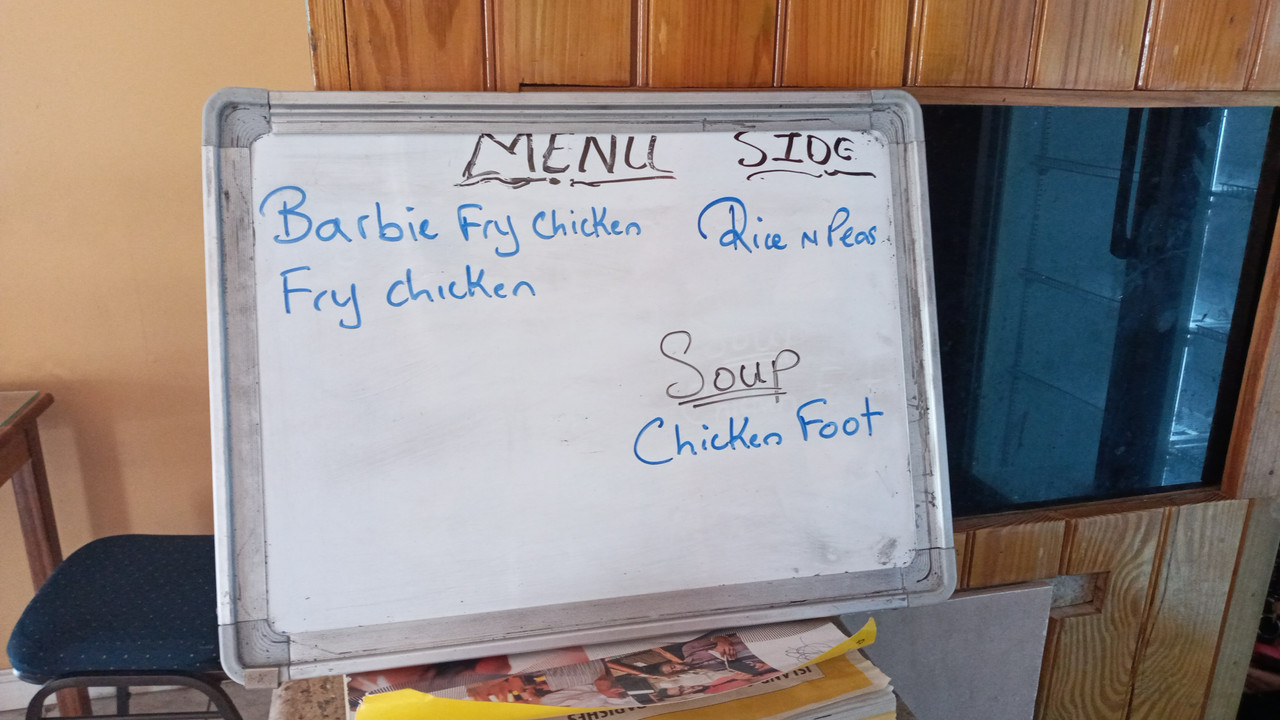 MENU SIDE
Barbie Fry Chicken Rice N Peas
Fry chicken
Soup
Chicken Foot